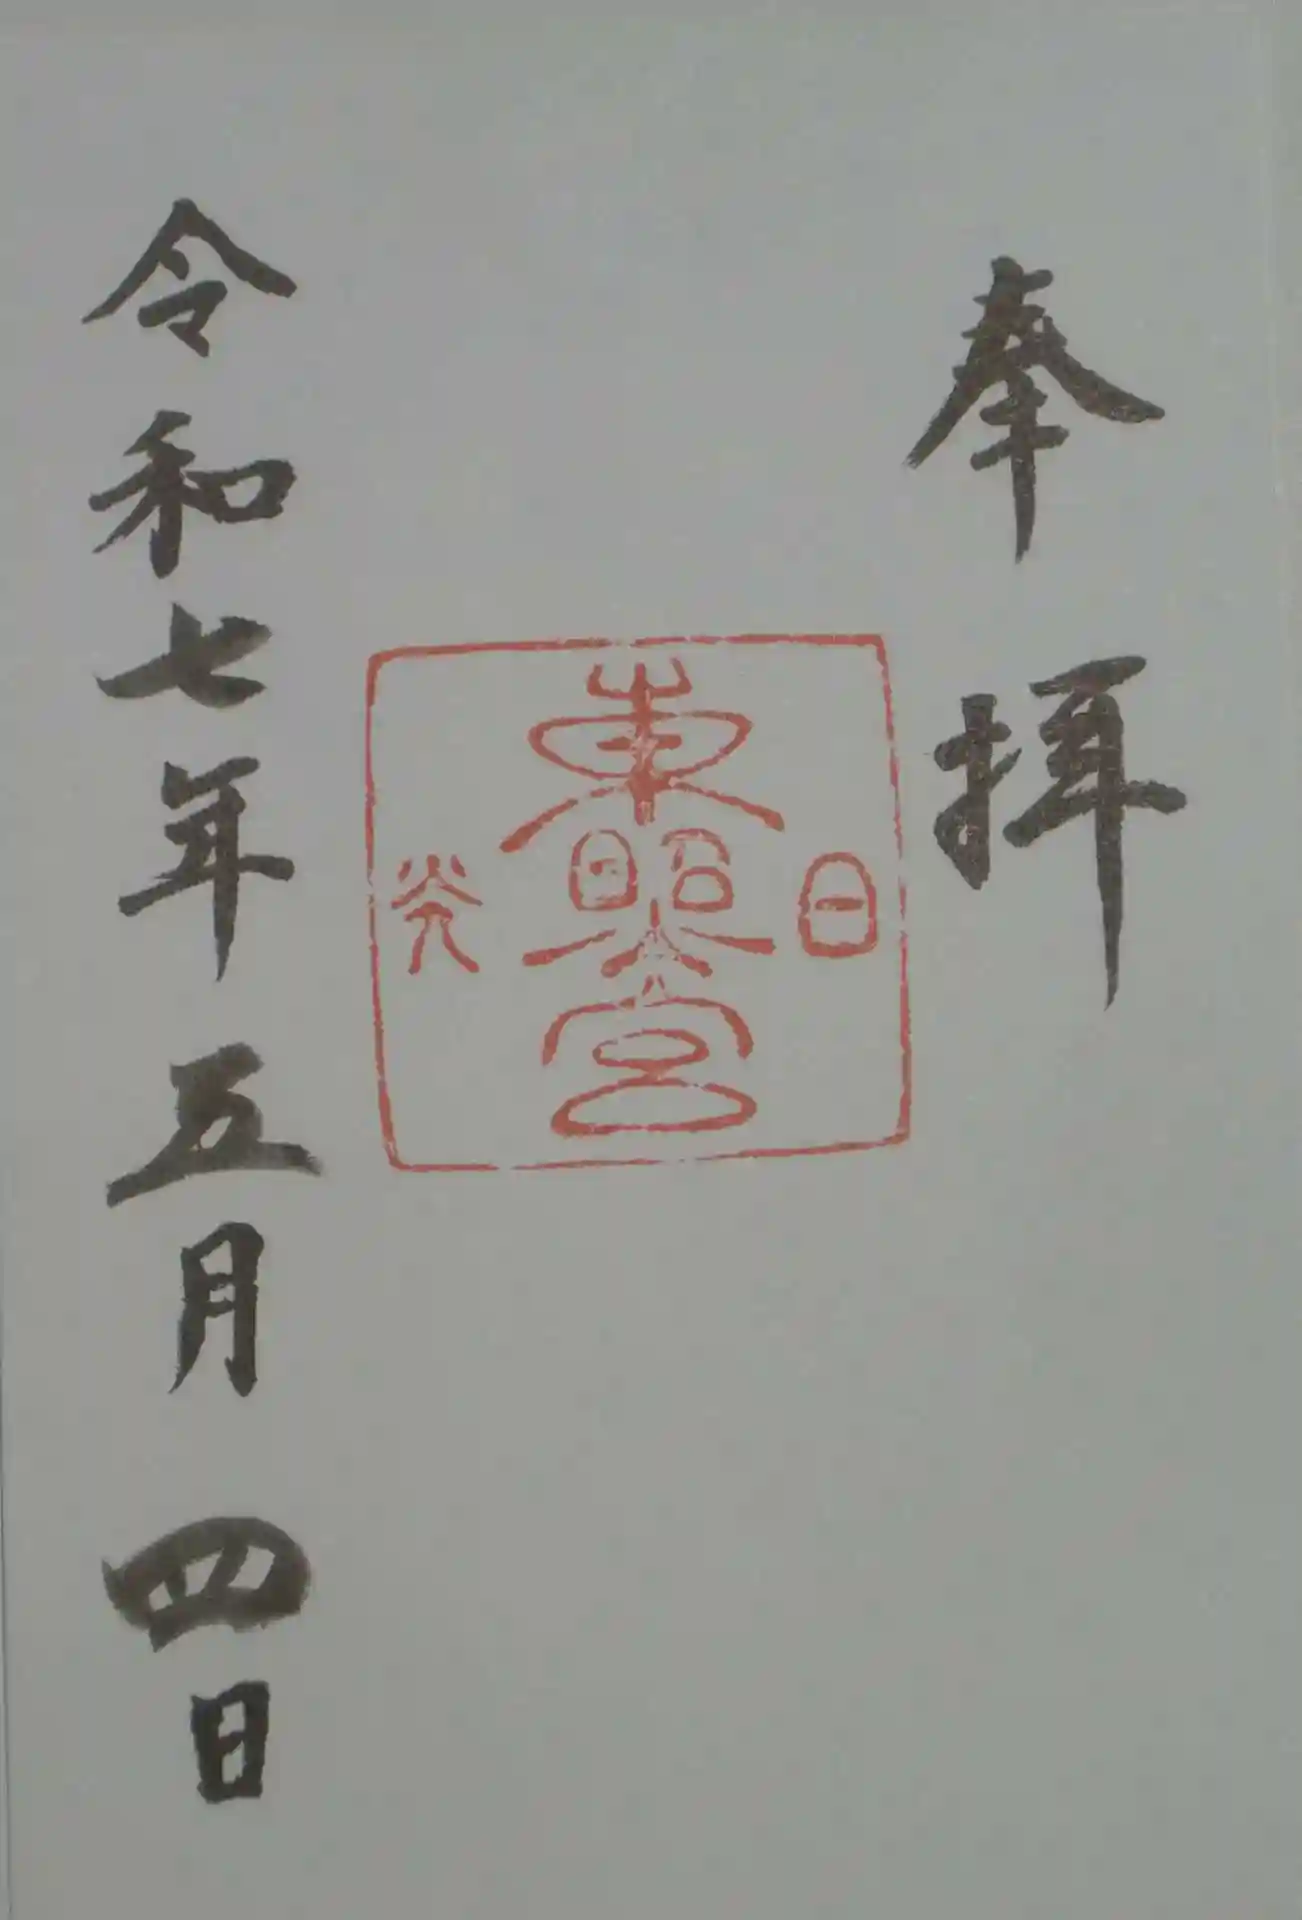 奉拝
日光
東照宮
令和七年五月四日